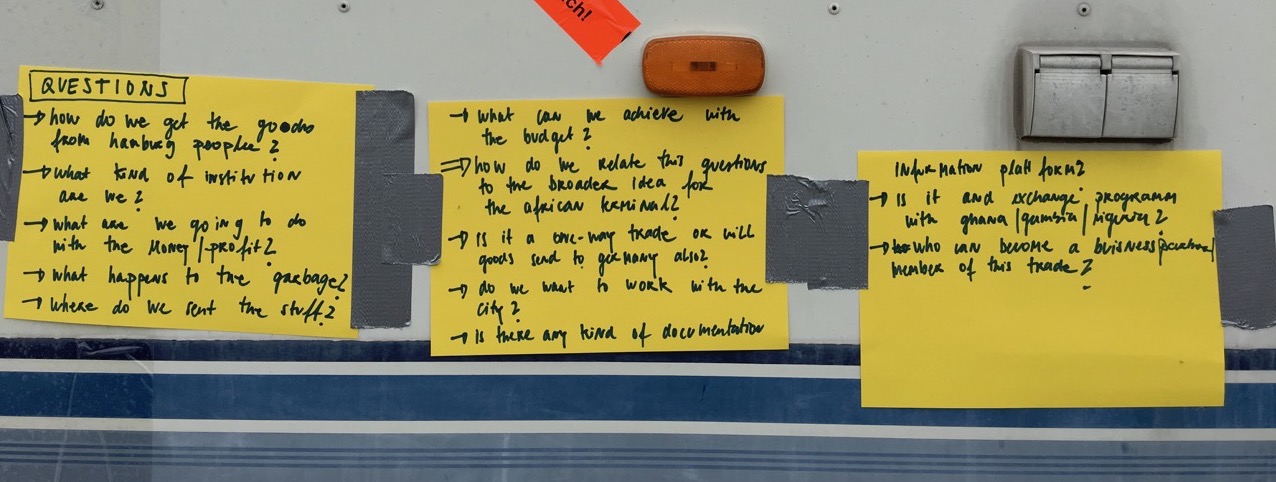 ch!
QUESTIONS
→ how do we get the goods
from hamburg people?
→ what kind of institution
are we?
→ what are we going to do
with the money/profit?
→ what happens to the garbage?
→ where do we sent the stuff?
→ what can we achieve with
the budget?
⇒ how do we relate this questions
to the broader idea for
the african terminal?
→ Is it a one-way trade or will
goods send to germany also?
→ do we want to work with the
city?
→ Is there any kind of documentation
Information platt form?
→ Is it and exchange programm
with ghana/gambia/nigeria?
→ who can become a buisness
member of this trade?